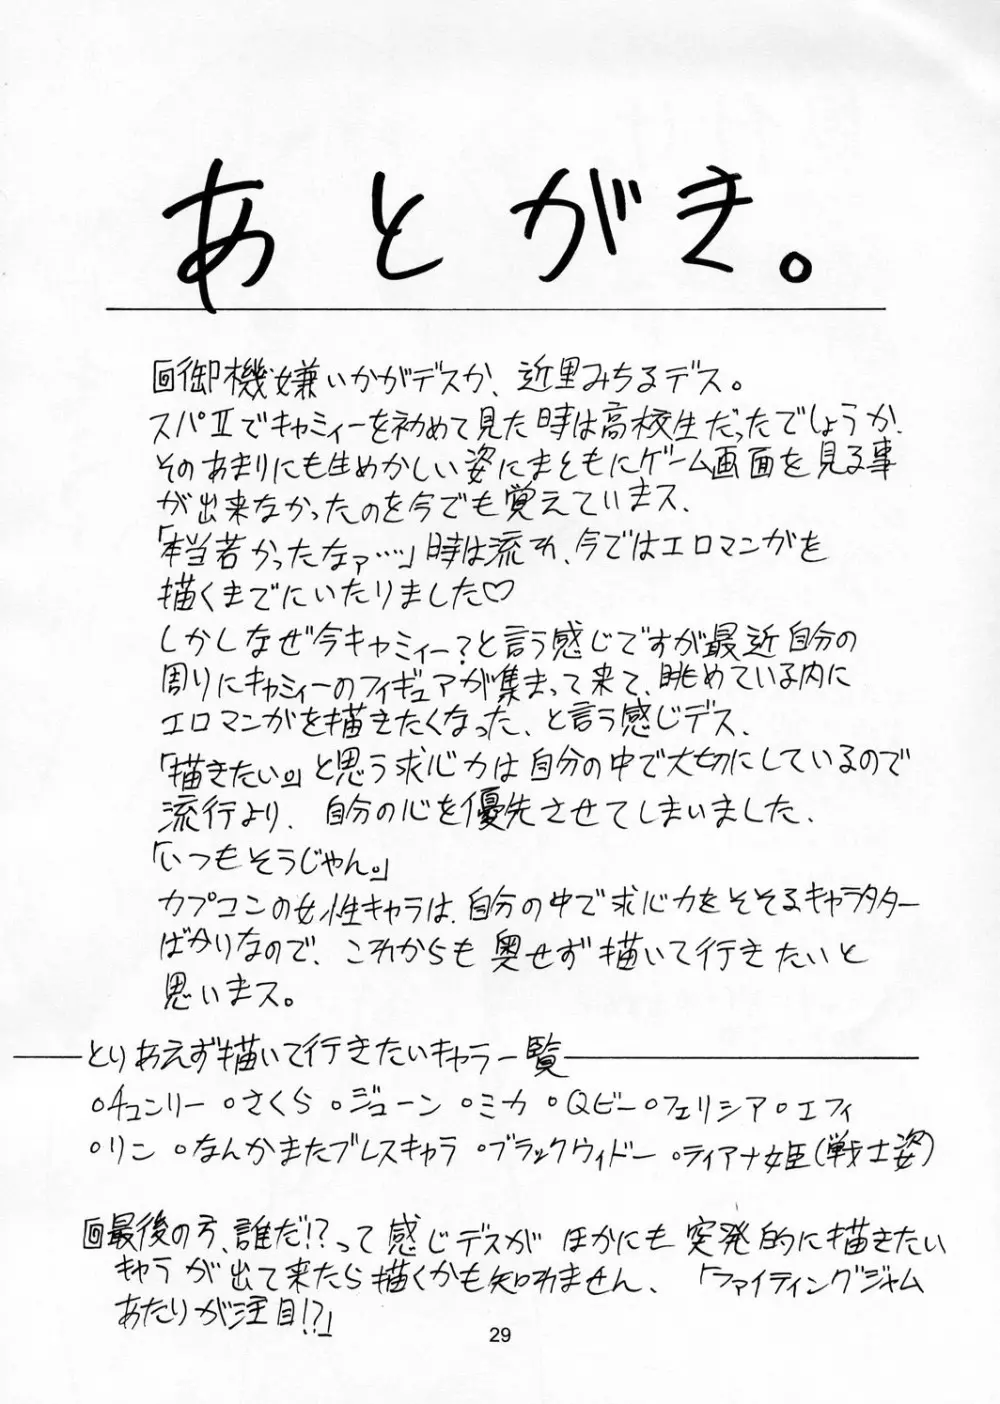 あとがき。
回御機嫌いかがデスか、近里みちるデス。
スパⅡでキャミィーを初めて見た時は高校生だったでしょうか、
そのあまりにも生めかしい姿にまともにゲーム画面を見る事
が出来なかったのを今でも覚えていまス、
「本当若かったなァ…」時は流れ、今ではエロマンガを
描くまでにいたりました♡
しかしなぜ今キャミィー?と言う感じですが最近自分の
周りにキャミィーのフィギュアが集まって来て、眺めている内に
エロマンガを描きたくなった、と言う感じデス、
「描きたい。」と思う求心力は自分の中で大切にしているので
流行より、自分の心を優先させてしまいました、
「いつもそうじゃん。」
カプコンの女性キャラは、自分の中で求心力をそそるキャラクター
ばかりなので、これからも臭せず描いて行きたいと
思いまス。
とりあえず描いて行きたいキャラ一覧
○チュンリー ○さくら ○ジューン ○ミカ ○Qビー ○フェリシア ○エフィ
○リン ○なんかまたブレスキャラ ○ブラックウィドー ○ティアナ姫(戦士姿)
回最後の方、誰だ!?って感じデスが ほかにも突発的に描きたい
キャラが出て来たら描くかも知れません、「ファイティングジャム
あたりが注目!?」
29